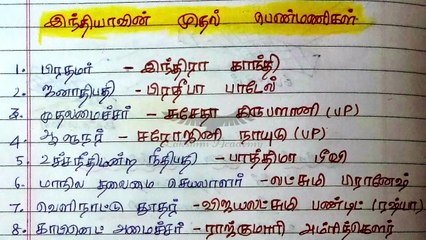 இந்தியாவின் முதல் பெண்மணிகள்
1. பிரதமர் - இந்திரா காந்தி
2. ஜனாதிபதி - பிரதீபா பாடேல்
3. முதலமைச்சர் - சுசேதா கிருபளானி (UP)
4. ஆளுநர் - சரோஜினி நாயுடு (UP)
5. உச்சநீதிமன்ற நீதிபதி - பாத்திமா பீவி
6. மாநில தலைமை செயலாளர் - லட்சுமி பிரானேஷ்
7. வெளிநாட்டு தூதர் - விஜயலட்சுமி பண்டிட் (ரஷ்யா)
8. காபினெட் அமைச்சர் - ராஜ்குமாரி அம்ரித்கௌர்